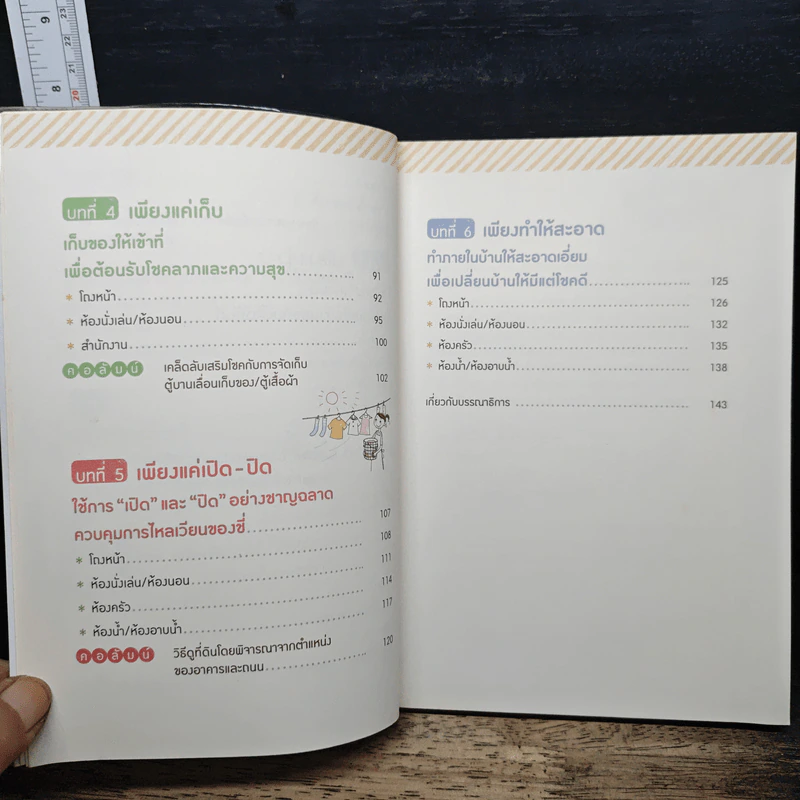 9
8
23
22
21
20
บทที่ 4 เพียงแค่เก็บ
เก็บของให้เข้าที่
เพื่อต้อนรับโชคลาภและความสุข 91
* โถงหน้า 92
* ห้องนั่งเล่น/ห้องนอน 95
* สำนักงาน 100
คอลัมน์ เคล็ดลับเสริมโชคกับการจัดเก็บ
ตู้บานเลื่อนเก็บของ/ตู้เสื้อผ้า 102
บทที่ 5 เพียงแค่เปิด-ปิด
ใช้การ “เปิด” และ “ปิด” อย่างชาญฉลาด
ควบคุมการไหลเวียนของชี่ 107
* โถงหน้า 108
* ห้องนั่งเล่น/ห้องนอน 111
* ห้องครัว 114
* ห้องน้ำ/ห้องอาบน้ำ 117
คอลัมน์ วิธีดูที่ดินโดยพิจารณาจากตำแหน่ง
ของอาคารและถนน 120
บทที่ 6 เพียงทำให้สะอาด
ทำภายในบ้านให้สะอาดเอี่ยม
เพื่อเปลี่ยนบ้านให้มีแต่โชคดี 125
* โถงหน้า 126
* ห้องนั่งเล่น/ห้องนอน 132
* ห้องครัว 135
* ห้องน้ำ/ห้องอาบน้ำ 138
เกี่ยวกับบรรณาธิการ 143